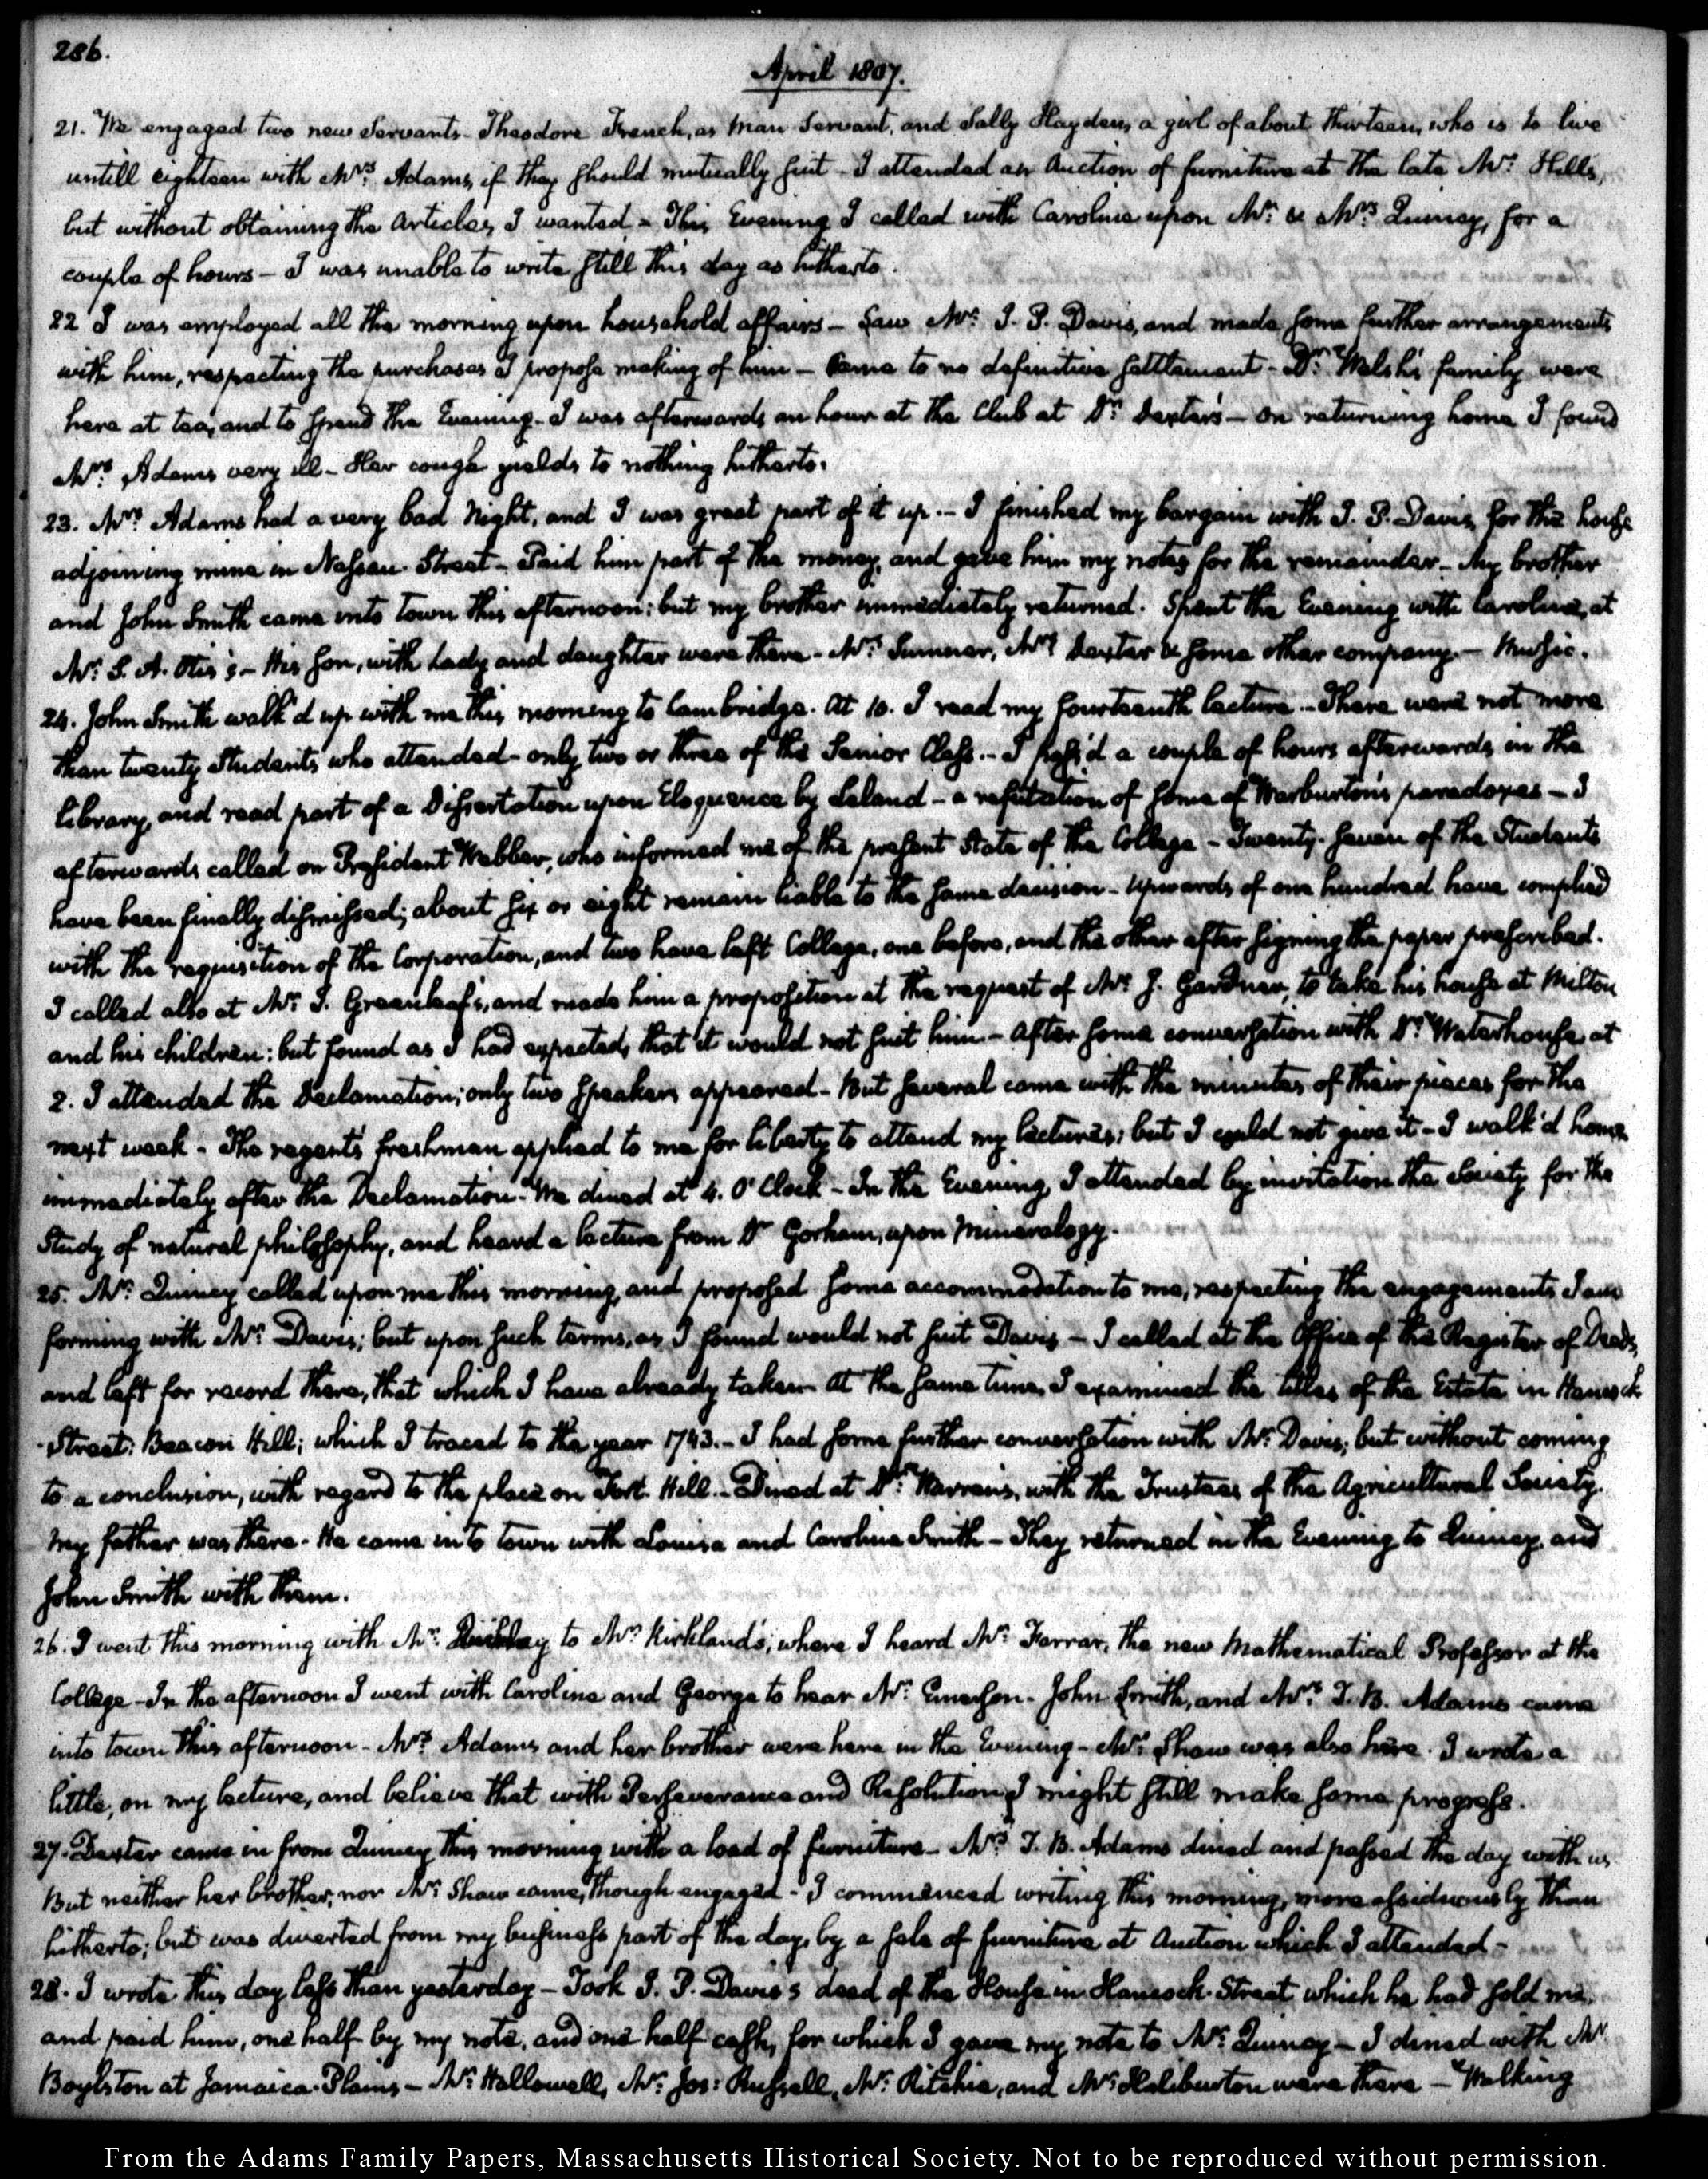 286.
April 1807.
21. We engaged two new Servants. Theodore French, as Man Servant, and Sally Hayden, a girl of about thirteen, who is to live
untill eighteen with Mrs. Adams, if they should mutually suit - I attended an Auction of furniture at the late Mr. Hills,
but without obtaining the Articles, I wanted - This Evening I called with Caroline upon Mr. & Mrs. Quincy, for a
couple of hours - I was unable to write still this day as hitherto.
22 I was employed all the morning upon household affairs - Saw Mr. I. P. Davis, and made some further arrangements
with him, respecting the purchases I propose making of him - Came to no definitive settlement - Dr. Welsh's family were
here at tea, and to spend the Evening - I was afterwards an hour at the Club at Dr. Dexter's - On returning home I found
Mrs. Adams very ill - Her cough yields to nothing hitherto.
23. Mrs. Adams had a very bad Night, and I was great part of it up. - I finished my bargain with I. P. Davis for the house
adjoining mine in Nassau-Street - Paid him part of the money, and gave him my notes for the remainder - My brother
and John Smith came into town this afternoon: but my brother immediately returned. Spent the Evening with Caroline, at
Mr. S. A. Otis's - His Son, with Lady and daughter were there - Mr. Sumner, Mrs. Dexter & some other company. - Music.
24. John Smith walk'd up with me this morning to Cambridge. At 10. I read my fourteenth lecture. - There were not more
than twenty Students who attended - only two or three of the Senior Class. - I pass'd a couple of hours afterwards in the
library, and read part of a Dissertation upon Eloquence by Leland - a refutation of some of Warburton's paradoxes - I
afterwards called on President Webber, who informed me of the present State of the College - Twenty-seven of the Students
have been finally dismissed; about six or eight remain liable to the same decision - Upwards of one hundred have complied
with the requisition of the Corporation, and two have left College, one before, and the other after signing the paper prescribed.
I called also at Mr. T. Greenleaf's, and made him a proposition at the request of Mr. J. Gardner, to take his house at Milton
and his children: but found as I had expected, that it would not suit him - After some conversation with Dr. Waterhouse, at
2. I attended the Declamation; only two Speakers appeared - But several came with the minutes of their pieces for the
next week - The regent's freshman applied to me for liberty to attend my lectures; but I could not give it - I walk'd home
immediately after the Declamation. We dined at 4. O'Clock - In the Evening, I attended by invitation the Society for the
Study of natural philosophy, and heard a lecture from Dr Gorham, upon Mineralogy.
25. Mr. Quincy called upon me this morning, and proposed some accommodation to me, respecting the engagements I am
forming with Mr. Davis; but upon such terms, as I found would not suit Davis - I called at the Office of the Register of Deeds,
and left for record there, that which I have already taken. At the same time, I examined the titles of the Estate in Hancock
-Street: Beacon Hill; which I traced to the year 1743. - I had some further conversation with Mr. Davis; but without coming
to a conclusion, with regard to the place on Fort-Hill. - Dined at Dr. Warren's, with the Trustees of the Agricultural Society.
My father was there - He came into town with Louisa and Caroline Smith - They returned in the Evening to Quincy, and
John Smith with them.
26. I went this morning with Mr. to Mr. Kirkland's; where I heard Mr. Farrar, the new Mathematical Professor at the
College - In the afternoon I went with Caroline and George to hear Mr. Emerson. John Smith, and Mrs. T. B. Adams came
into town this afternoon - Mrs. Adams and her brother were here in the Evening - Mr. Shaw was also here. I wrote a
little, on my lecture, and believe that with Perseverance and Resolution I might still make some progress.
27. Dexter came in from Quincy this morning with a load of furniture - Mrs. T. B. Adams dined and passed the day with us
But neither her brother, nor Mr. Shaw came, though engaged - I commenced writing this morning, more assiduously than
hitherto; but was diverted from my business part of the day, by a sale of furniture at Auction which I attended -
28. I wrote this day less than yesterday - Took I. P. Davis's deed of the House in Hancock-Street which he had sold me,
and paid him, one half by my note, and one half cash, for which I gave my note to Mr. Quincy - I dined with Mr.
Boylston at Jamaica-Plains - Mr. Hallowell, Mr. Jos: Russell, Mr. Ritchie, and Mr. Haliburton were there - Walking
From the Adams Family Papers, Massachusetts Historical Society. Not to be reproduced without permission.